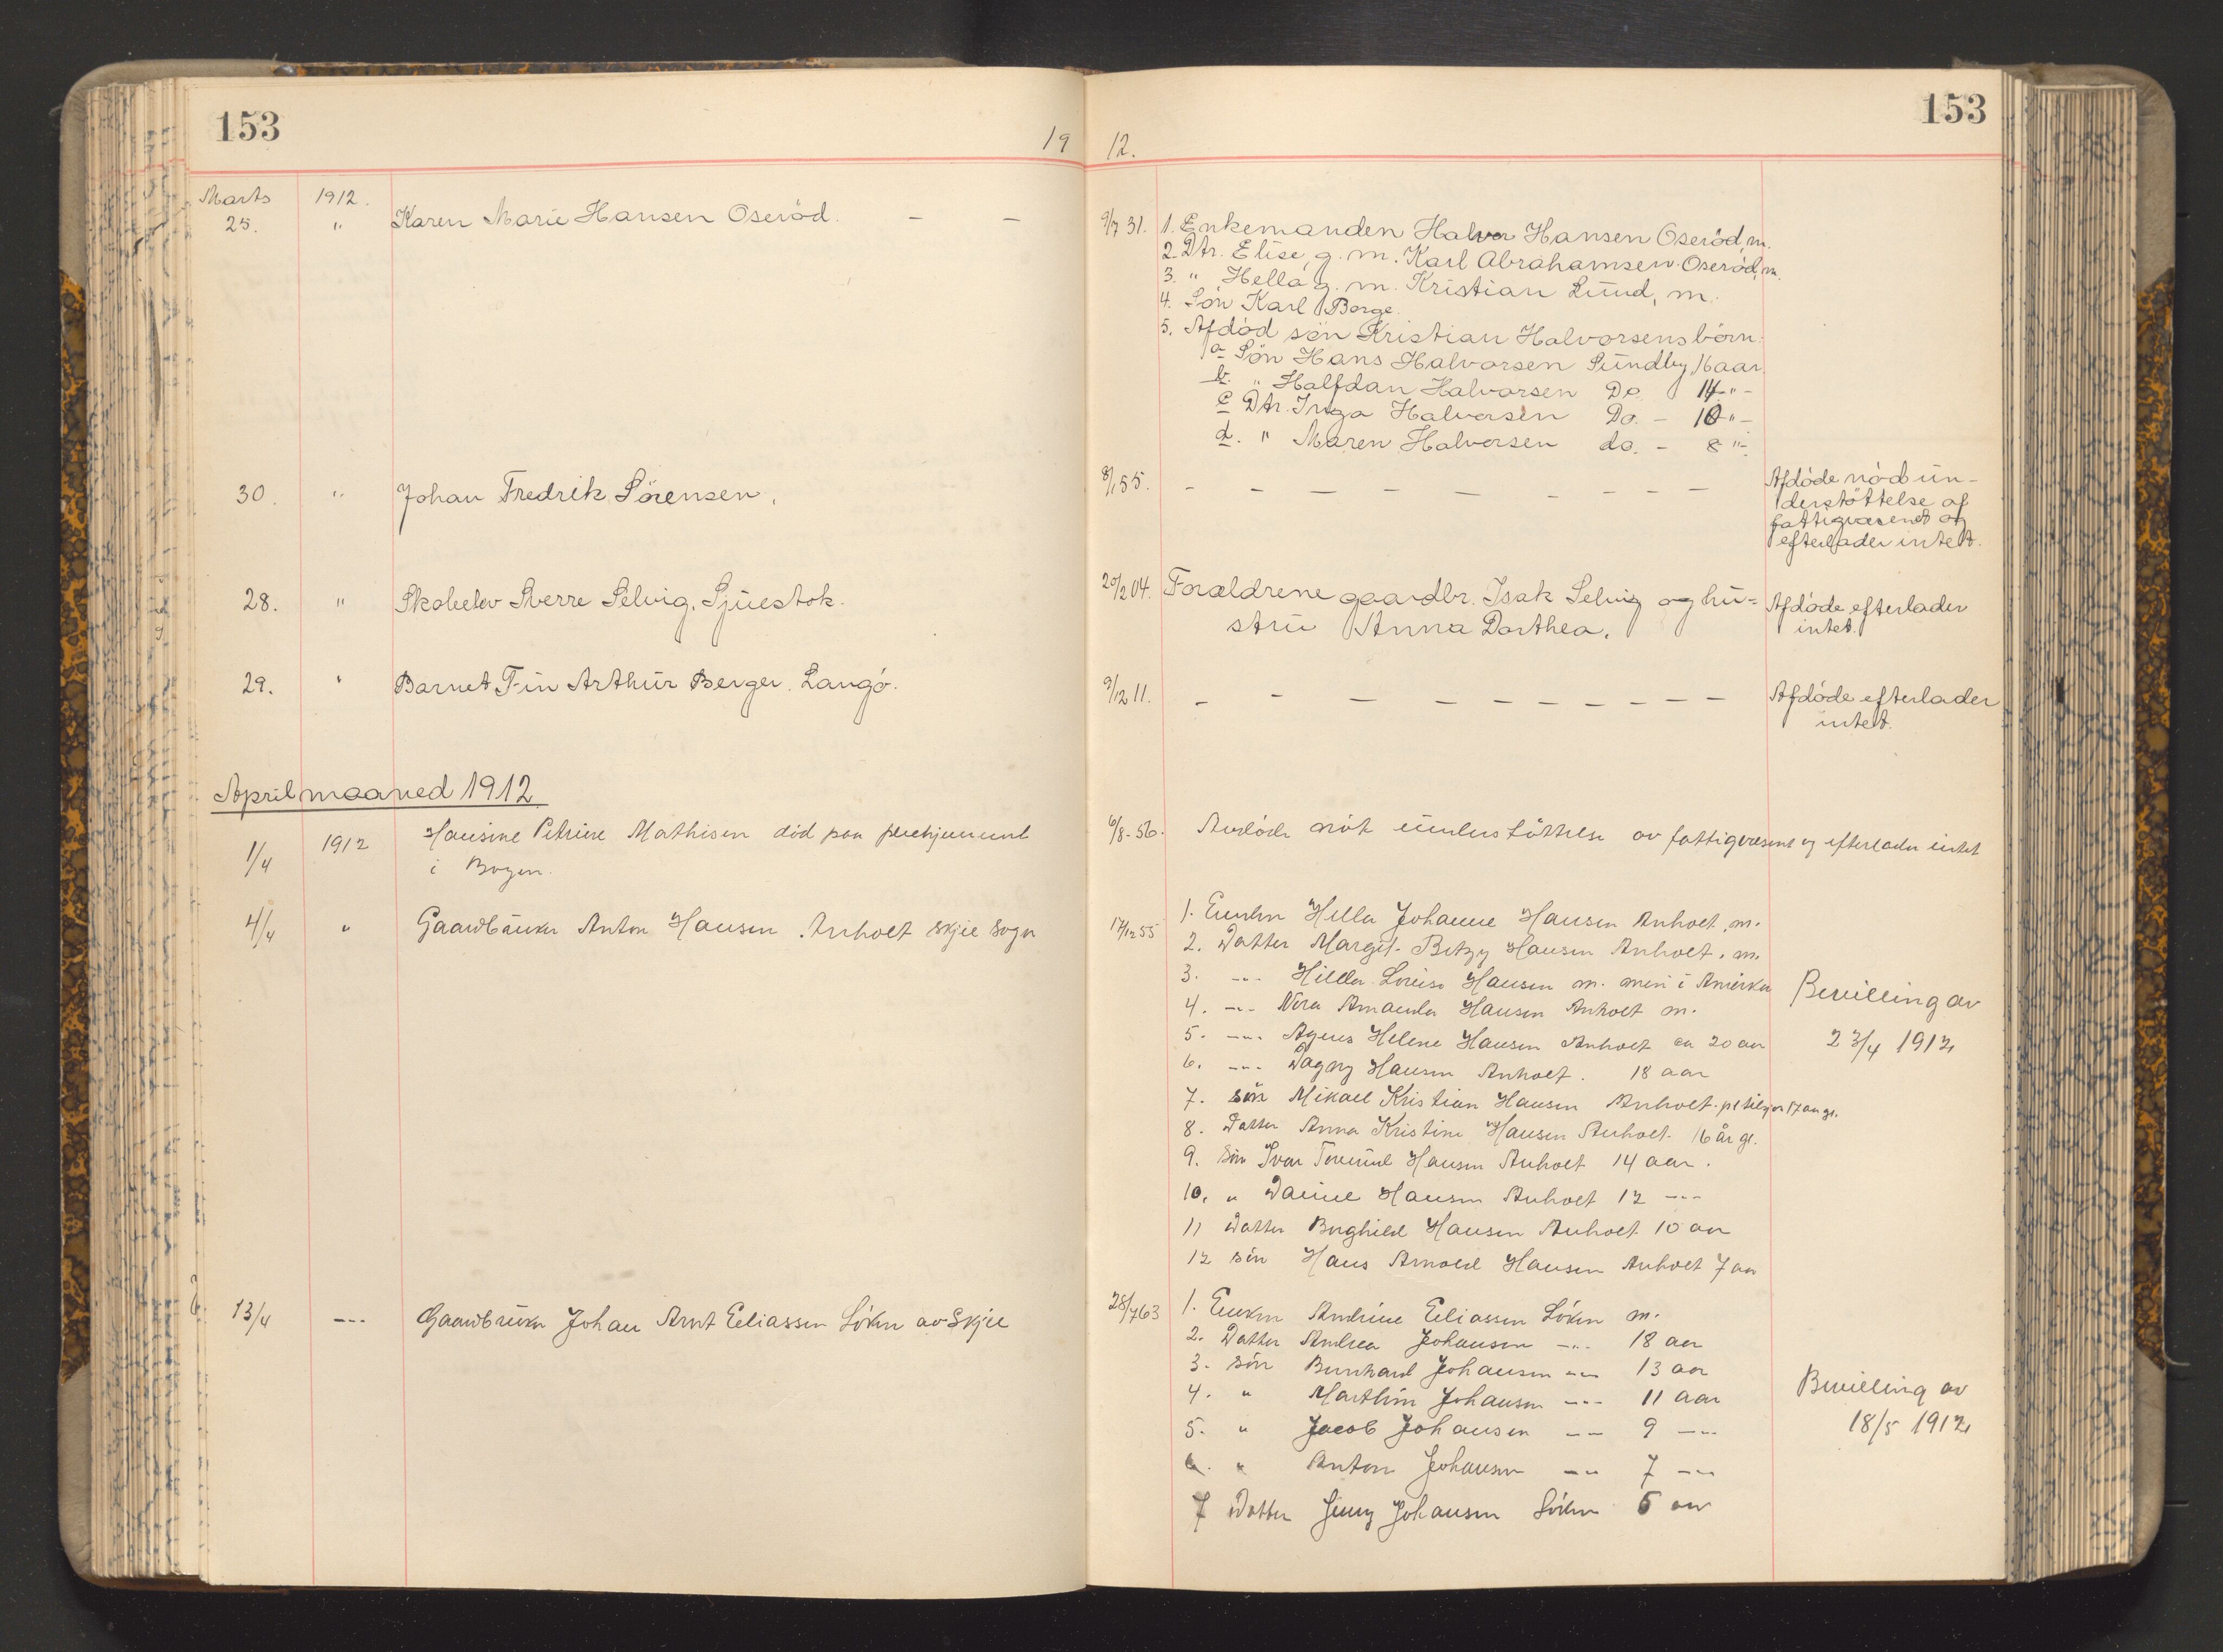 153
153
19 12.
Marts 1912.
25. " Karen Marie Hansen Oseröd. - -
9/7 31. 1. Enkemanden Halvor Hansen Oseröd, m.
2. Dtr. Elise, g. m. Karl Abrahamsen Oseröd, m.
3. " Hella g. m. Kristian Lund, m.
4. Sön Karl Borge.
5. Afdöd sön Kristian Halvorsens börn:
a Sön Hans Halvorsen Sundby 16 aar.
b. " Halfdan Halvorsen Do. 14 " -
c Dtr. Inga Halvorsen Do. - 10 " -
d. " Maren Halvorsen do. - 8 " -
30. " Johan Fredrik Sörensen.
8/1 55. - - - - - - - - -
Afdöde nöd un-
derstöttelse af
fattigvæsenet og
efterlader intet.
28. " Skoleelev Sverre Selvig, Sjuestok.
20/2 04. Forældrene gaardbr. Isak Selvig og hu-
stru Anna Dorthea.
Afdöde efterlader
intet.
29. " Barnet Fin Arthur Berger. Langö.
9/12 11. - - - - - - - - -
Afdöde efterlader
intet.
April maaned 1912.
1/4 1912 Hansine Petrine Mathisen död paa pleiehjemmet
i Bogen.
6/8 - 56. Avdöde nöt understöttelse av fattigvæsenet og efterlader intet
4/4 " Gaardbruker Anton Hansen Anholt Skjee Sogn
17/12 55 1. Enken Hella Johanne Hansen Anholt, m.
2. Datter Margit Betzy Hansen Anholt, m.
3. -"- Hilda Lovise Hansen m. men i Amerika
4. -"- Nora Amanda Hansen Anholt m.
5. -"- Agnes Helene Hansen Anholt ca 20 aar
6. -"- Dagny Hansen Anholt. 18 aar
7. sön Mikael Kristian Hansen Anholt. pt tilsjös 17 aar gl.
8. Datter Anna Kristine Hansen Anholt 16 år gl.
9. Sön Ivar Hansen Anholt 14 aar.
10. " Daniel Hansen Anholt 12 -"-
11 Datter Borghild Hansen Anholt 10 aar
12 sön Hans Arnold Hansen Anholt 7 aar
Bevilling av
23/4 1912
13/4 -"- Gaardbruker Johan Arnt Eliassen Löken av Skjee
28/7 63 1. Enken Andrine Eliassen Löken m.
2. Datter Andrea Johansen -"- 18 aar
3. Sön Bernhard Johansen -"- 13 aar
4. " Marthin Johansen -"- 11 aar
5. " Jacob Johansen -"- 9 -"-
6. " Anton Johansen -"- 7 -"-
7 Datter Jenny Johansen Löken 5 aar
Bevilling av
18/5 1912